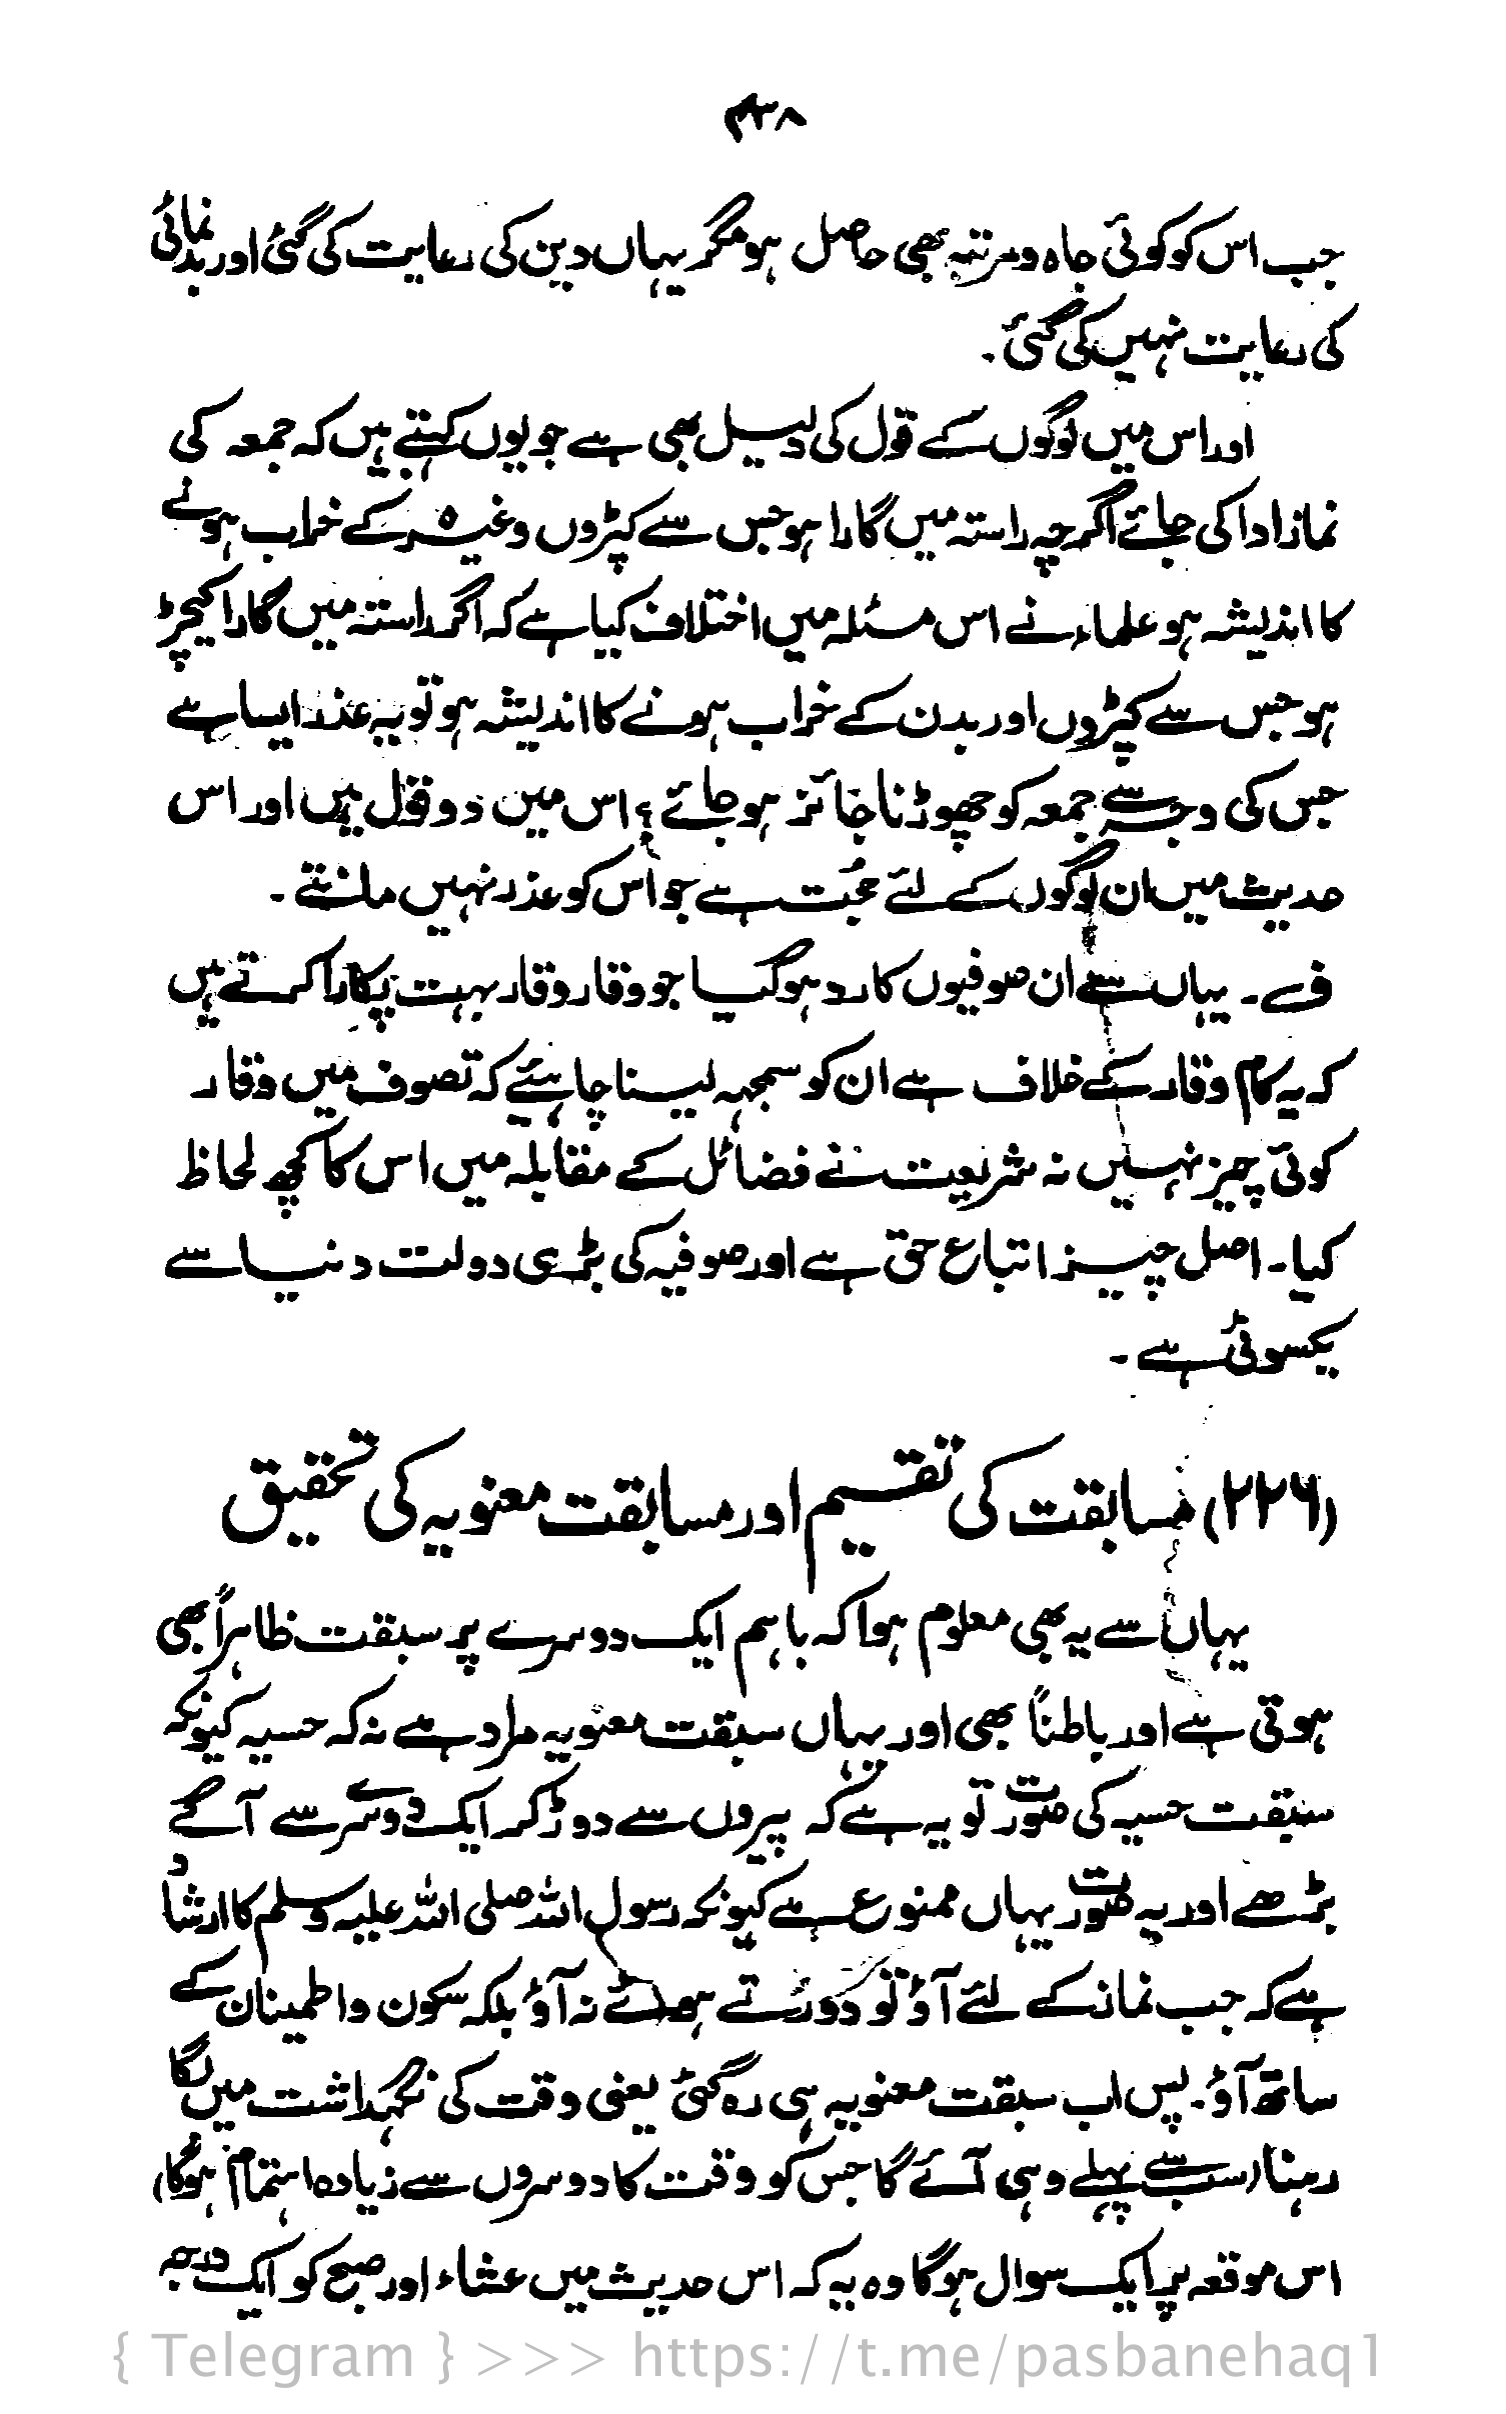 ۴۳۸
جب اس کو کوئی جاہ و مرتبہ بھی حاصل ہو مگر یہاں دین کی رعایت کی گئی اور بدنمائی
کی رعایت نہیں کی گئی۔
اور اس میں لوگوں کے قول کی دلیل بھی ہے جو یوں کہتے ہیں کہ جمعہ کی
نماز ادا کی جائے اگرچہ راستہ میں گارا ہو جس سے کپڑوں وغیرہ کے خراب ہونے
کا اندیشہ ہو علماء نے اس مسئلہ میں اختلاف کیا ہے کہ اگر راستہ میں گارا کیچڑ
ہو جس سے کپڑوں اور بدن کے خراب ہونے کا اندیشہ ہو تو یہ عذر ایسا ہے
جس کی وجہ سے جمعہ کو چھوڑنا جائز ہو جائے؟ اس میں دو قول ہیں اور اس
حدیث میں ان لوگوں کے لئے حجت ہے جو اس کو عذر نہیں مانتے۔
ف۔ یہاں سے ان صوفیوں کا رد ہو گیا جو وقار وقار بہت پکارا کرتے ہیں
کہ یہ کام وقار کے خلاف ہے ان کو سمجھ لینا چاہئیے کہ تصوف میں وقار
کوئی چیز نہیں نہ شریعت نے فضائل کے مقابلہ میں اس کا کچھ لحاظ
کیا۔ اصل چیز اتباع حق ہے اور صوفیہ کی بڑی دولت دنیا سے
یکسوئی ہے۔
(۲۲۶) مسابقت کی تقسیم اور مسابقت معنویہ کی تحقیق
یہاں سے یہ بھی معلوم ہوا کہ باہم ایک دوسرے پر سبقت ظاہراً بھی
ہوتی ہے اور باطناً بھی اور یہاں سبقت معنویہ مراد ہے نہ کہ حسیہ کیونکہ
سبقت حسیہ کی صورت تو یہ ہے کہ پیروں سے دوڑ کر ایک دوسرے سے آگے
بڑھے اور یہ صورت یہاں ممنوع ہے کیونکہ رسول اللہ صلی اللہ علیہ وسلم کا ارشاد
ہے کہ جب نماز کے لئے آؤ تو دوڑتے ہوئے نہ آؤ بلکہ سکون و اطمینان کے
ساتھ آؤ۔ پس اب سبقت معنویہ ہی رہ گئی یعنی وقت کی نگہداشت میں لگا
رہنا (سب سے پہلے وہی آئے گا جس کو وقت کا دوسروں سے زیادہ اہتمام ہو گا)
اس موقعہ پر ایک سوال ہو گا وہ یہ کہ اس حدیث میں عشاء اور صبح کو ایک درجہ
{ Telegram } >>> https://t.me/pasbanehaq1